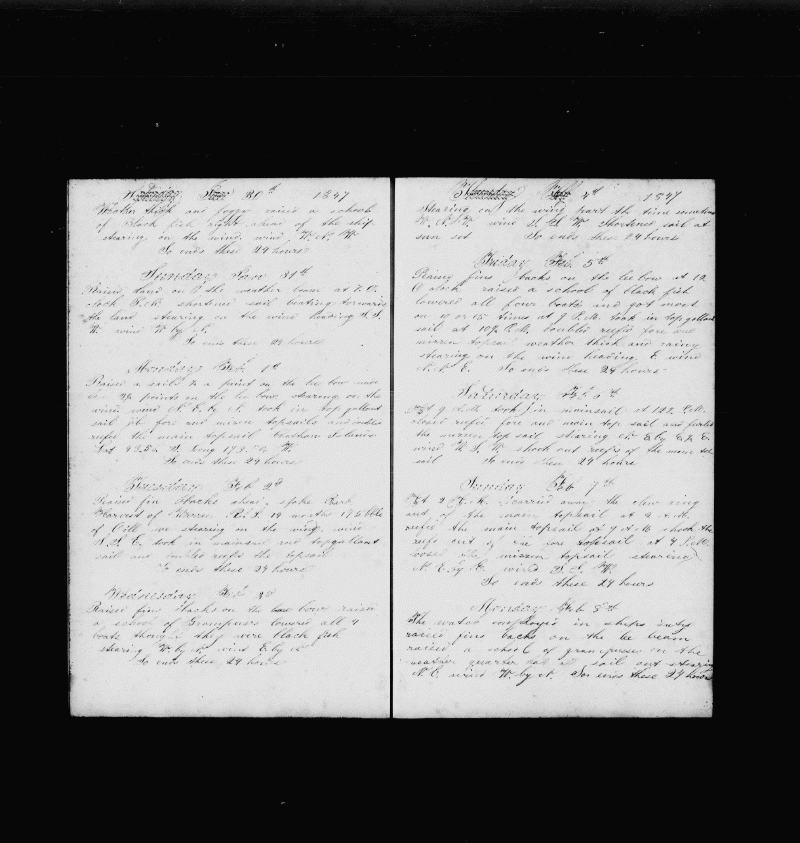 Jan 30th 1847
Weather thick and foggy raised a school
of black fish right ahead of the ship
stearing on the wind wind W. N. W
So ends these 24 hours
Sunday Jan 31th
Raised land on the weather beam at
P.M. shortened sail beating towards
the land stearing on the wind heading S. S.
W. wind W by S.
So ends these 24 hours
Monday Feb 1st
Raised a sail a point on the lee bow
points on the lee bow stearing on the
wind wind N. E. by N. took in top gallant
sail jib fore and mizen topsails and
reefes the main topsail
Lat Long W.
So ends these 24 hours
Tuesday Feb 2d
Raised fin backs ahead spoke Bark
Harvest of Warren R.I. 19 months
of Oill stearing on the wind wind
S. S. E. took in mainsail and topgallant
sail and doubles reefes the topsail
So ends these 24 hours
Wednesday Feb 3d
Raised fins backs on the bow raised
a school of Grampuses lowered all 4
boats thought they were black fish
stearing W. by N. wind E. by N
So ends these 24 hours
Thursday Feb 4th 1847
Stearing on the wind part the time sometimes
W. N. W. wind S. S. W. Shortened sail at
sun set So ends these 24 hours
Friday Feb 5th
Raised fins backs on the lee bow at 12
O clock raised a school of black fish
lowered all four boats and got most
on 10 or 15 times at P.M. took in top gallant
sail at 10 P.M. doubles reefes fore and
mizen topsail weather thick and rainy
stearing on the wind heading E. wind
N. N. E. So ends these 24 hours
Saturday Feb 6th
At 9 A.M. took in mainsail at 12 P.M.
closed reefes fore and main top sail and furled
the mizen top sail stearing E by
wind shook out reefs of the main top
sail So ends these 24 hours
Sunday Feb 7th
At 2 A.M. carried away the clew ring
of the main topsail at A.M.
reefes the main topsail at 7 A.M. shook the
reefs out of the fore topsail at 4 P.M.
loosed the mizen topsail stearing
N. E. by E. wind S. S. W.
So ends these 24 hours
Monday Feb 8th
The watch employed in ships duty
raised fins backs on the lee beam
raised a school of grampuses on the
weather quarter sail out stearing
N. E. wind W. by N. So ends these 24 hours